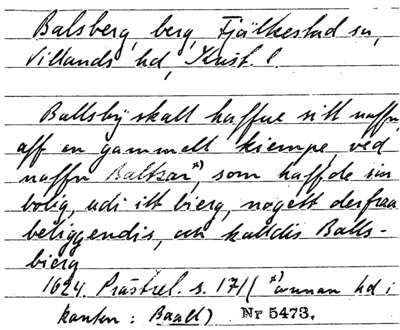 Balsberg, berg, Fjälkestad sn,
Villands hd, Krist. l.
Ballsbÿ skall haffue sitt naffn
aff en gammelt kiempe, ved
naffn Baltzar*), som haffde sin
bolig, udi itt bierg, nogett derfraa
beliggendis, och kalldis Balls-
bierg
1624. Prästrel. s. 171 (*) annan hd i
kanten: Baall) Nr 5473.